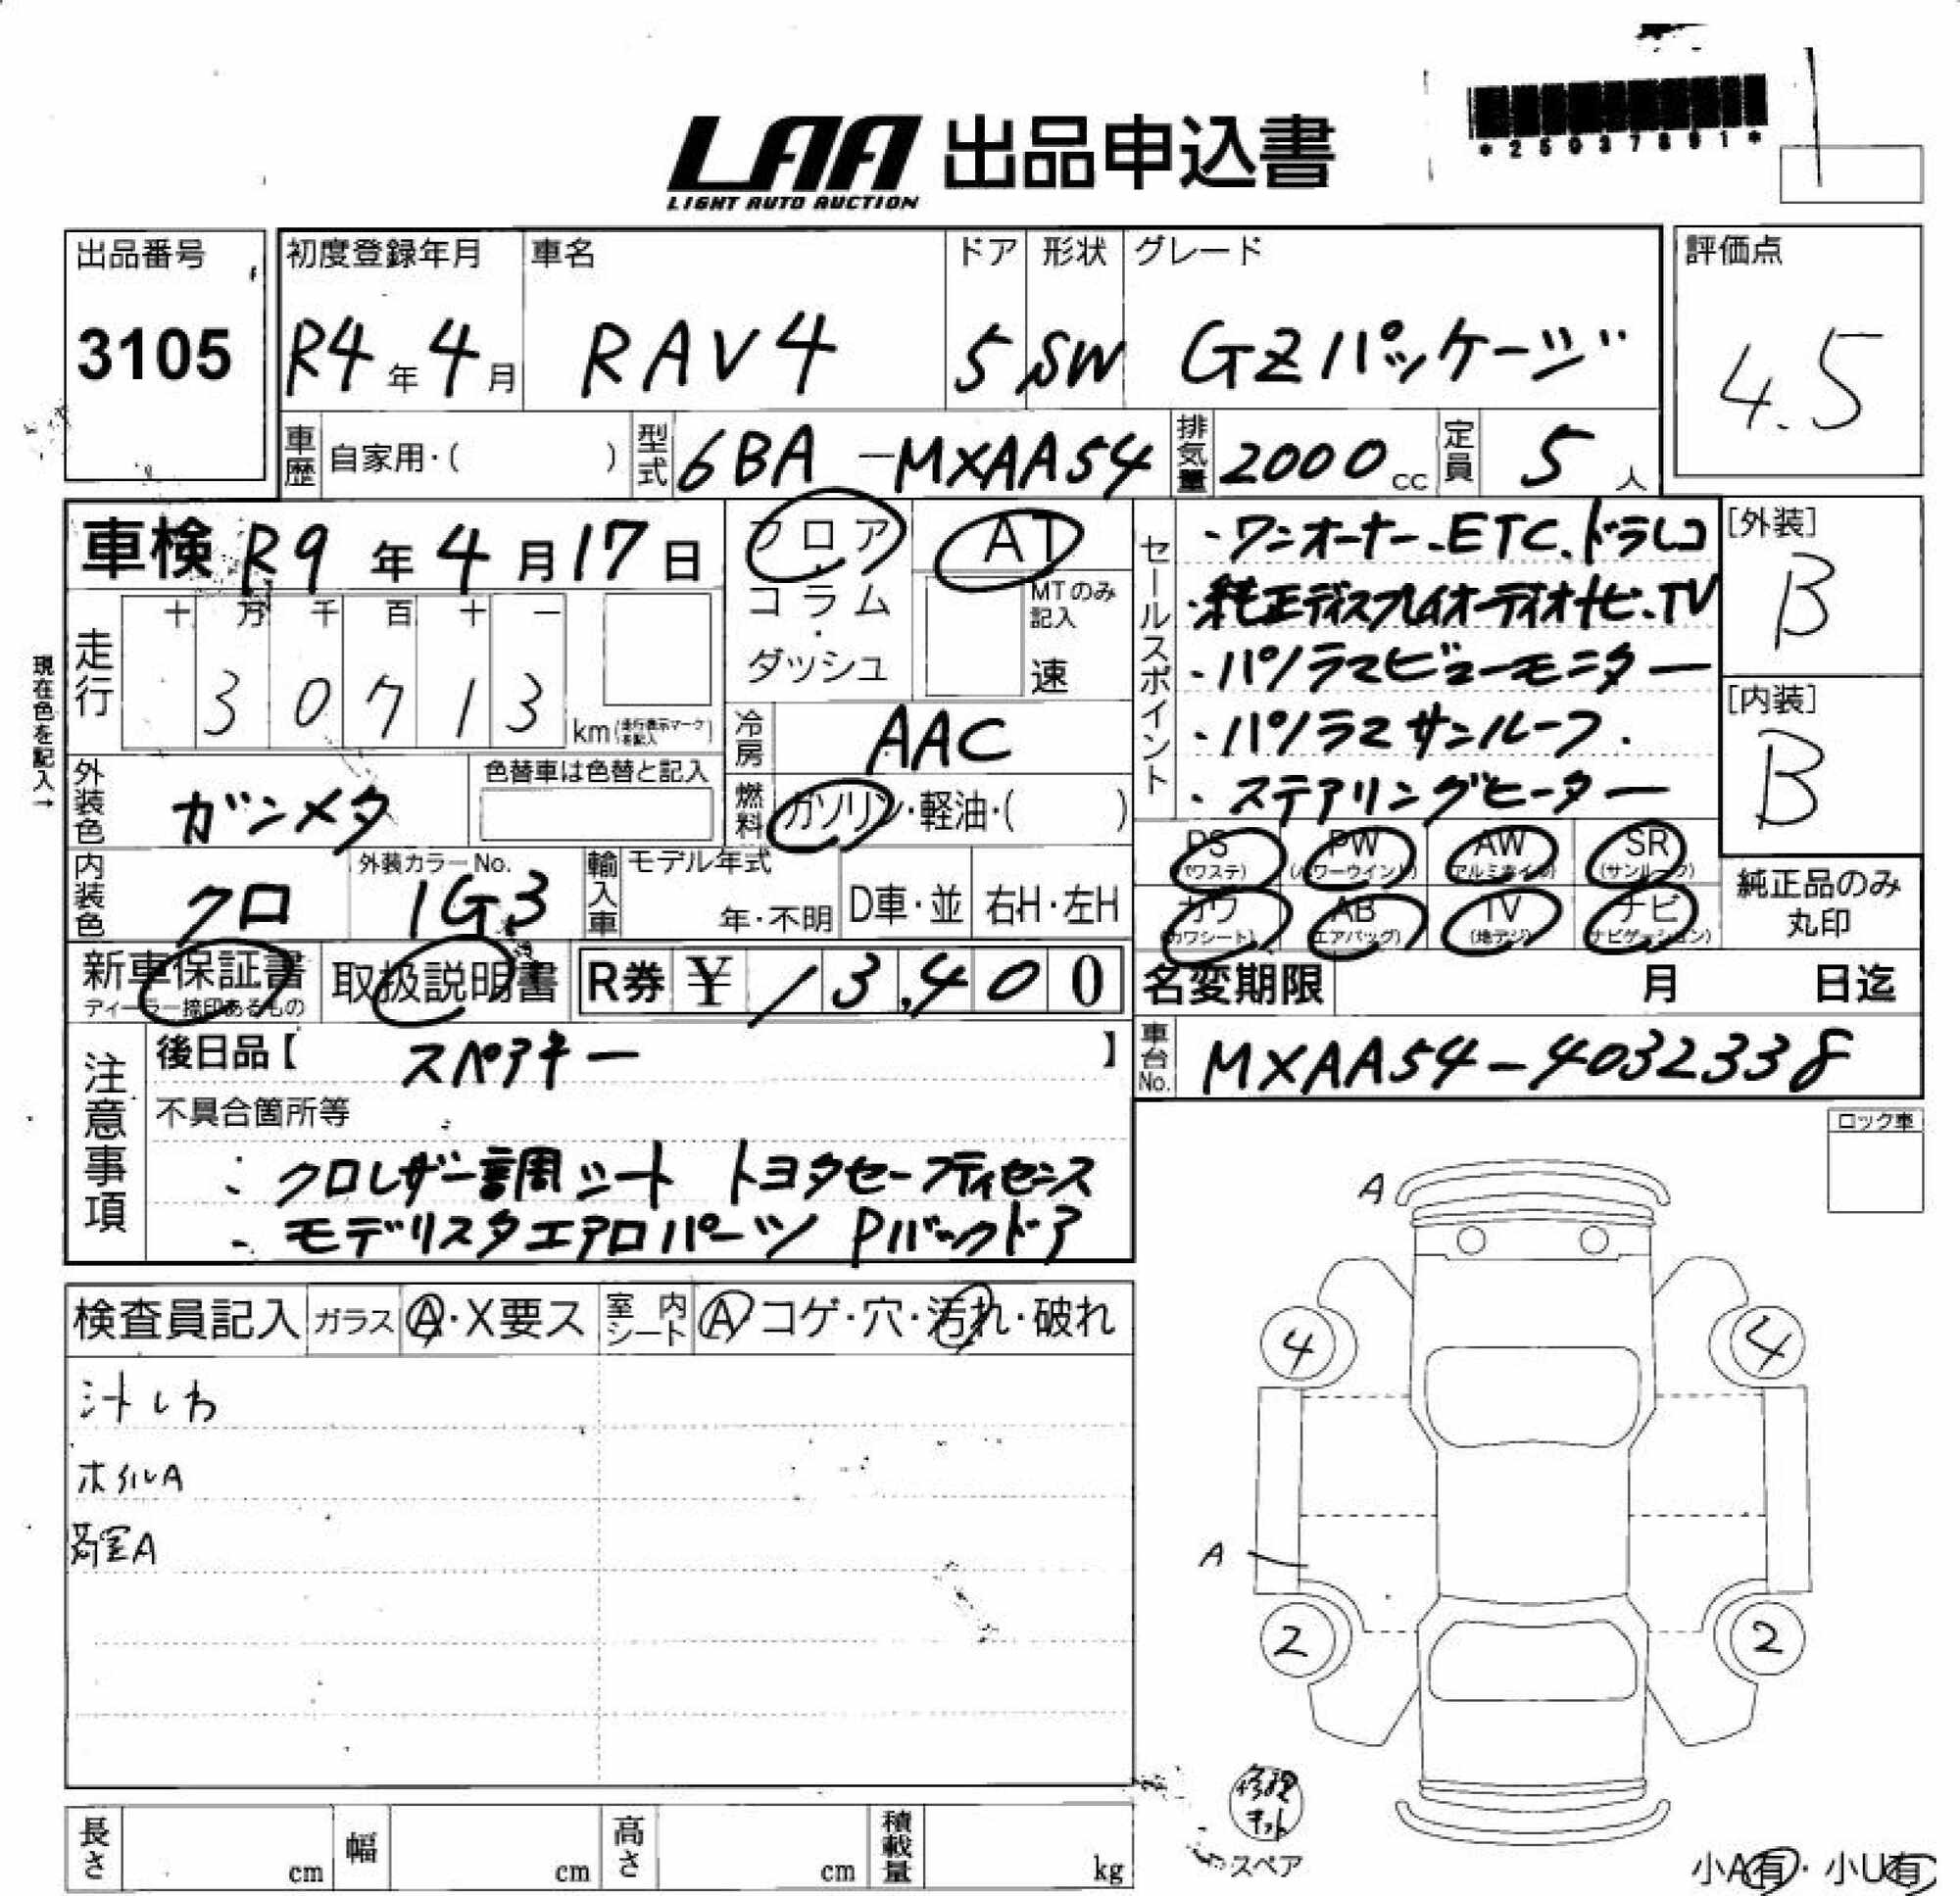 *25037891*
LAA 出品申込書
LIGHT AUTO AUCTION
出品番号
3105
初度登録年月
R4年4月
車名
RAV4
ドア
5
形状
SW
グレード
GZパッケージ
評価点
4.5
車歴 自家用・( )
型式 6BA-MXAA54
排気量 2000cc
定員 5人
車検 R9年4月17日
フロア
コラム
・
ダッシュ
AT
MTのみ記入
速
セールスポイント
・ワンオーナー、ETC、ドラレコ
・純正ディスプレイオーディオナビ、TV
・パノラマビューモニター
・パノラマサンルーフ.
・ステアリングヒーター
[外装]
B
[内装]
B
現在色を記入→
走行
十 万 千 百 十 一
3 0 7 1 3
km(走行表示マークを記入)
冷房 AAC
燃料 ガソリン・軽油・( )
外装色 ガンメタ
色替車は色替と記入
PS (パワステ)
PW (パワーウインド)
AW (アルミホイル)
SR (サンルーフ)
カワ (カワシート)
AB (エアバッグ)
TV (地デジ)
ナビ (ナビゲーション)
純正品のみ
丸印
内装色 クロ
外装カラーNo.
1G3
輸入車
モデル年式
年・不明
D車・並
右H・左H
新車保証書
ディーラー捺印あるもの
取扱説明書
R券 ¥13,400
名変期限 月 日迄
車台No. MXAA54-4032338
注意事項
後日品【 スペアキー 】
不具合箇所等
・クロレザー調シート トヨタセーフティセンス
・モデリスタエアロパーツ Pバックドア
ロック車
検査員記入
ガラス A・X要ス
室内シート A コゲ・穴・汚れ・破れ
シートしわ
ホイルA
荷室A
A
4
4
A
2
2
修理キット
スペア
小A有・小U有
長さ cm
幅 cm
高さ cm
積載量 kg